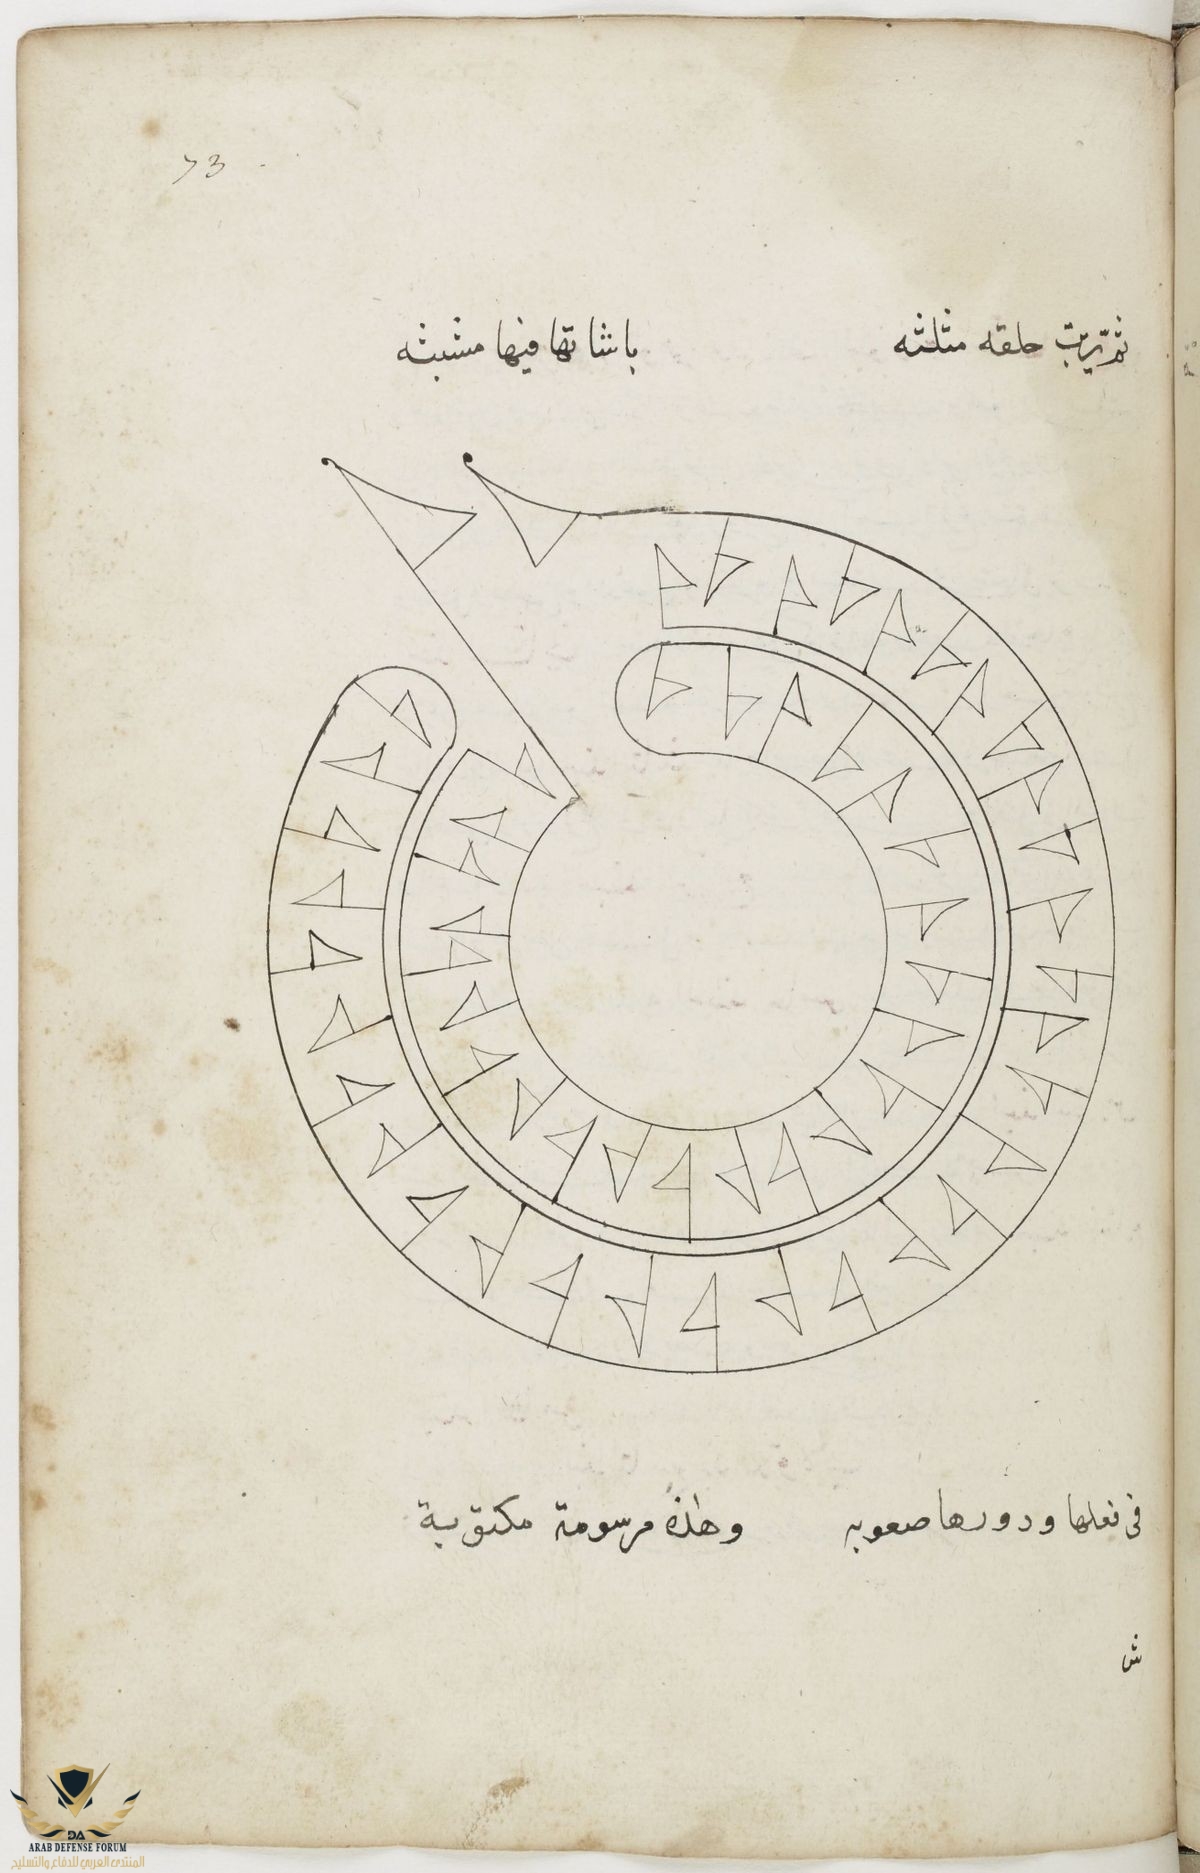 73
ثم يرتب حلقه مثلثه باشاتها فيها مشبثه
في فعلها ودورها صعوبه وهذه مرسومة مكتوبة
ش
ARAB DEFENSE FORUM
المنتدى العربي للدفاع والتسليح